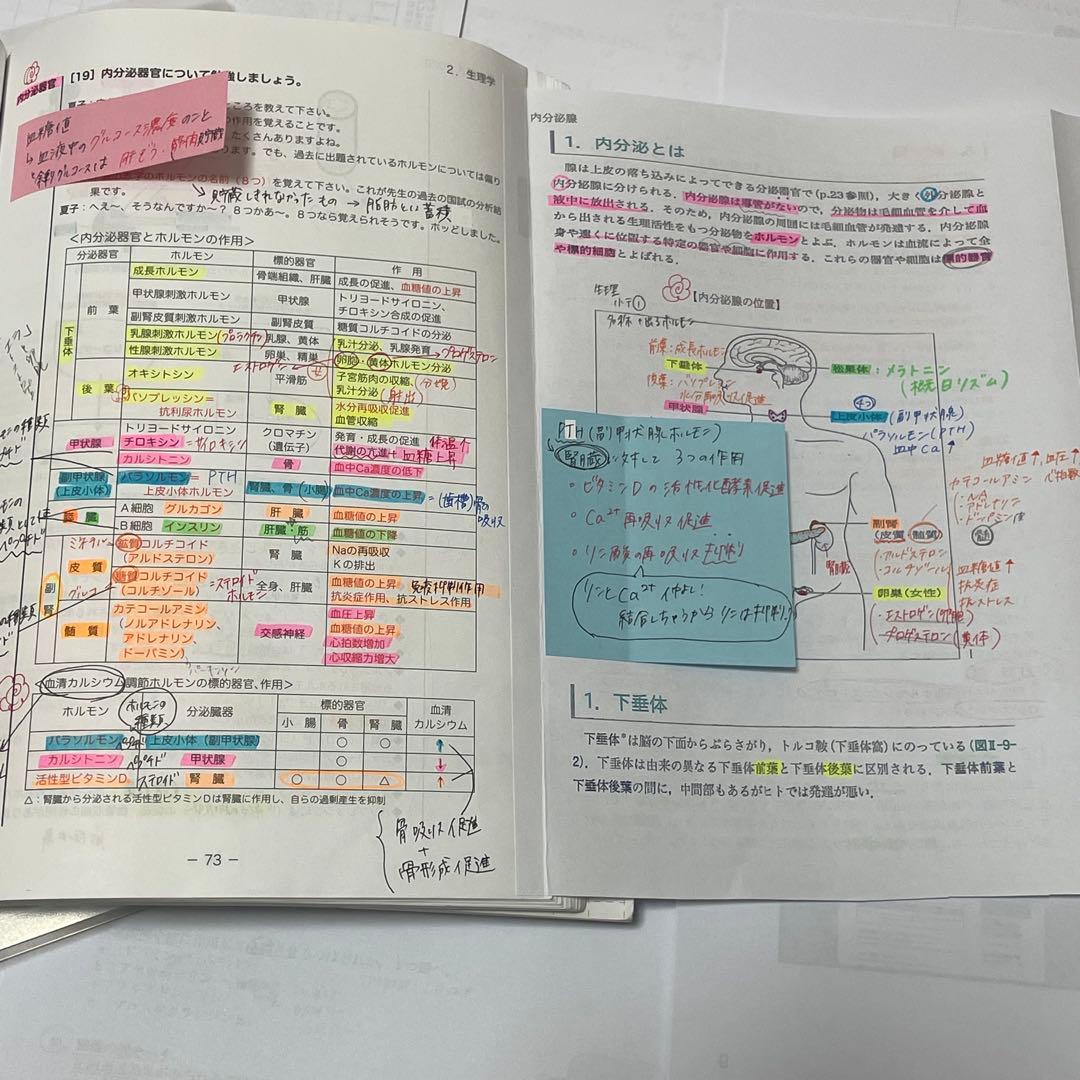 2．生理学
内分泌器官
[19] 内分泌器官について勉強しましょう。
血糖値
↳血液中のグルコース濃度のこと
余剰グルコースは 肝ぞう・筋肉貯蔵
ころを教えて下さい。
の作用を覚えることです。
たくさんありますよね。
ります。でも、過去に出題されているホルモンについては偏り
赤字のホルモンの名前（８つ）を覚えて下さい。これが先生の過去の国試の分析結
果です。
↳貯蔵しきれなかったもの → 脂肪として蓄積
夏子：へえ～、そうなんですか～？ ８つかあ～。８つなら覚えられそうです。ホッとしました。
＜内分泌器官とホルモンの作用＞
分泌器官 ホルモン 標的器官 作 用
下垂体
前 葉
成長ホルモン 骨端組織、肝臓 成長の促進、血糖値の上昇
甲状腺刺激ホルモン 甲状腺 トリヨードサイロニン、
チロキシン合成の促進
副腎皮質刺激ホルモン 副腎皮質 糖質コルチコイドの分泌
乳腺刺激ホルモン (プロラクチン) 乳腺、黄体 乳汁分泌、乳腺発育 →プロゲステロン
性腺刺激ホルモン 卵巣、精巣 卵胞、黄体ホルモン分泌
エストロゲン
後 葉
オキシトシン 平滑筋 子宮筋肉の収縮、(分娩)
乳汁分泌 (射出)
バソプレッシン＝
抗利尿ホルモン 腎 臓 水分再吸収促進
血管収縮
甲状腺
トリヨードサイロニン クロマチン
(遺伝子) 発育・成長の促進 体温↑
チロキシン＝サイロキシン 代謝の亢進＋血糖上昇
カルシトニン 骨 血中Ca濃度の低下
副甲状腺
(上皮小体)
パラソルモン＝PTH
上皮小体ホルモン 腎臓、骨(小腸) 血中Ca濃度の上昇＝(歯槽)骨の
吸収
膵 臓
A細胞 グルカゴン 肝 臓 血糖値の上昇
B細胞 インスリン 肝臓・筋 血糖値の下降
副腎
皮 質
ミネラル 鉱質コルチコイド
(アルドステロン) 腎 臓 Naの再吸収
Kの排出
グルコ 糖質コルチコイド
(コルチゾール) ステロイド
ホルモン 全身、肝臓 血糖値の上昇 免疫抑制作用
抗炎症作用、抗ストレス作用
髄 質
カテコールアミン
(ノルアドレナリン、
アドレナリン、
ドーパミン) 交感神経 血圧上昇
血糖値の上昇
心拍数増加
心収縮力増大
パーキンソン
＜血清カルシウム調節ホルモンの標的器官、作用＞
ホルモン ホルモンの
種類 分泌臓器 標的器官 血清
カルシウム
小 腸 骨 腎 臓
パラソルモン ペプチド 上皮小体(副甲状腺) ○ ○ ↑
カルシトニン ペプチド 甲状腺 ○ ↓
活性型ビタミンD ステロイド 腎 臓 ○ ○ △ ↑
△：腎臓から分泌される活性型ビタミンDは腎臓に作用し、自らの過剰産生を抑制
骨吸収促進
＋
骨形成促進
― 73 ―
内分泌腺
1．内分泌とは
腺は上皮の落ち込みによってできる分泌器官で(p.23参照)，大きく外分泌腺と
内分泌腺に分けられる．内分泌腺は導管がないので，分泌物は毛細血管を介して血
液中に放出される．そのため，内分泌腺の周囲には毛細血管が発達する．内分泌腺
から出される生理活性をもつ分泌物をホルモンとよぶ．ホルモンは血流によって全
身や遠くに位置する特定の器官や細胞に作用する．これらの器官や細胞は標的器官
や標的細胞とよばれる．
生理
小テ①
【内分泌腺の位置】
名称＋出るホルモン
前葉：成長ホルモン
下垂体
後葉：バソプレシン
水分再吸収促進
甲状腺
松果体：メラトニン
(概日リズム)
4つ
上皮小体 (副甲状腺)
パラソルモン(PTH)
血中Ca↑
血糖値↑，血圧↑
カテコールアミン 心拍数
・NA
・アドレナリン
・ドーパミン
髄
副腎
(皮質 髄質)
・アルドステロン
・コルチゾール
血糖値↑
抗炎症
抗ストレス
腎臓
卵巣(女性)
・エストロゲン(卵胞)
・プロゲステロン(黄体)
PTH(副甲状腺ホルモン)
腎臓に対して 3つの作用
・ビタミンDの活性化酵素促進
・Ca²⁺ 再吸収促進
・リン酸の再吸収抑制
リンとCa²⁺ 仲よし!
結合しちゃうから リンは抑制
1．下垂体
下垂体*は脳の下面からぶらさがり，トルコ鞍(下垂体窩)にのっている(図Ⅱ-9-
2)．下垂体は由来の異なる下垂体前葉と下垂体後葉に区別される．下垂体前葉と
下垂体後葉の間に，中間部もあるがヒトでは発達が悪い．